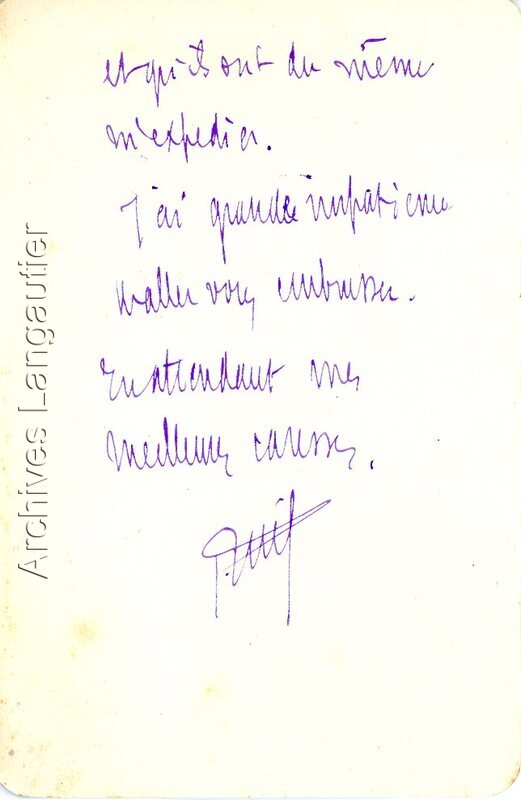 et qu'ils ont du même
m'expedier.
J'ai grande impatience
d'aller vous embrasser.
En attendant mes
meilleures caresses.
Archives Langautier